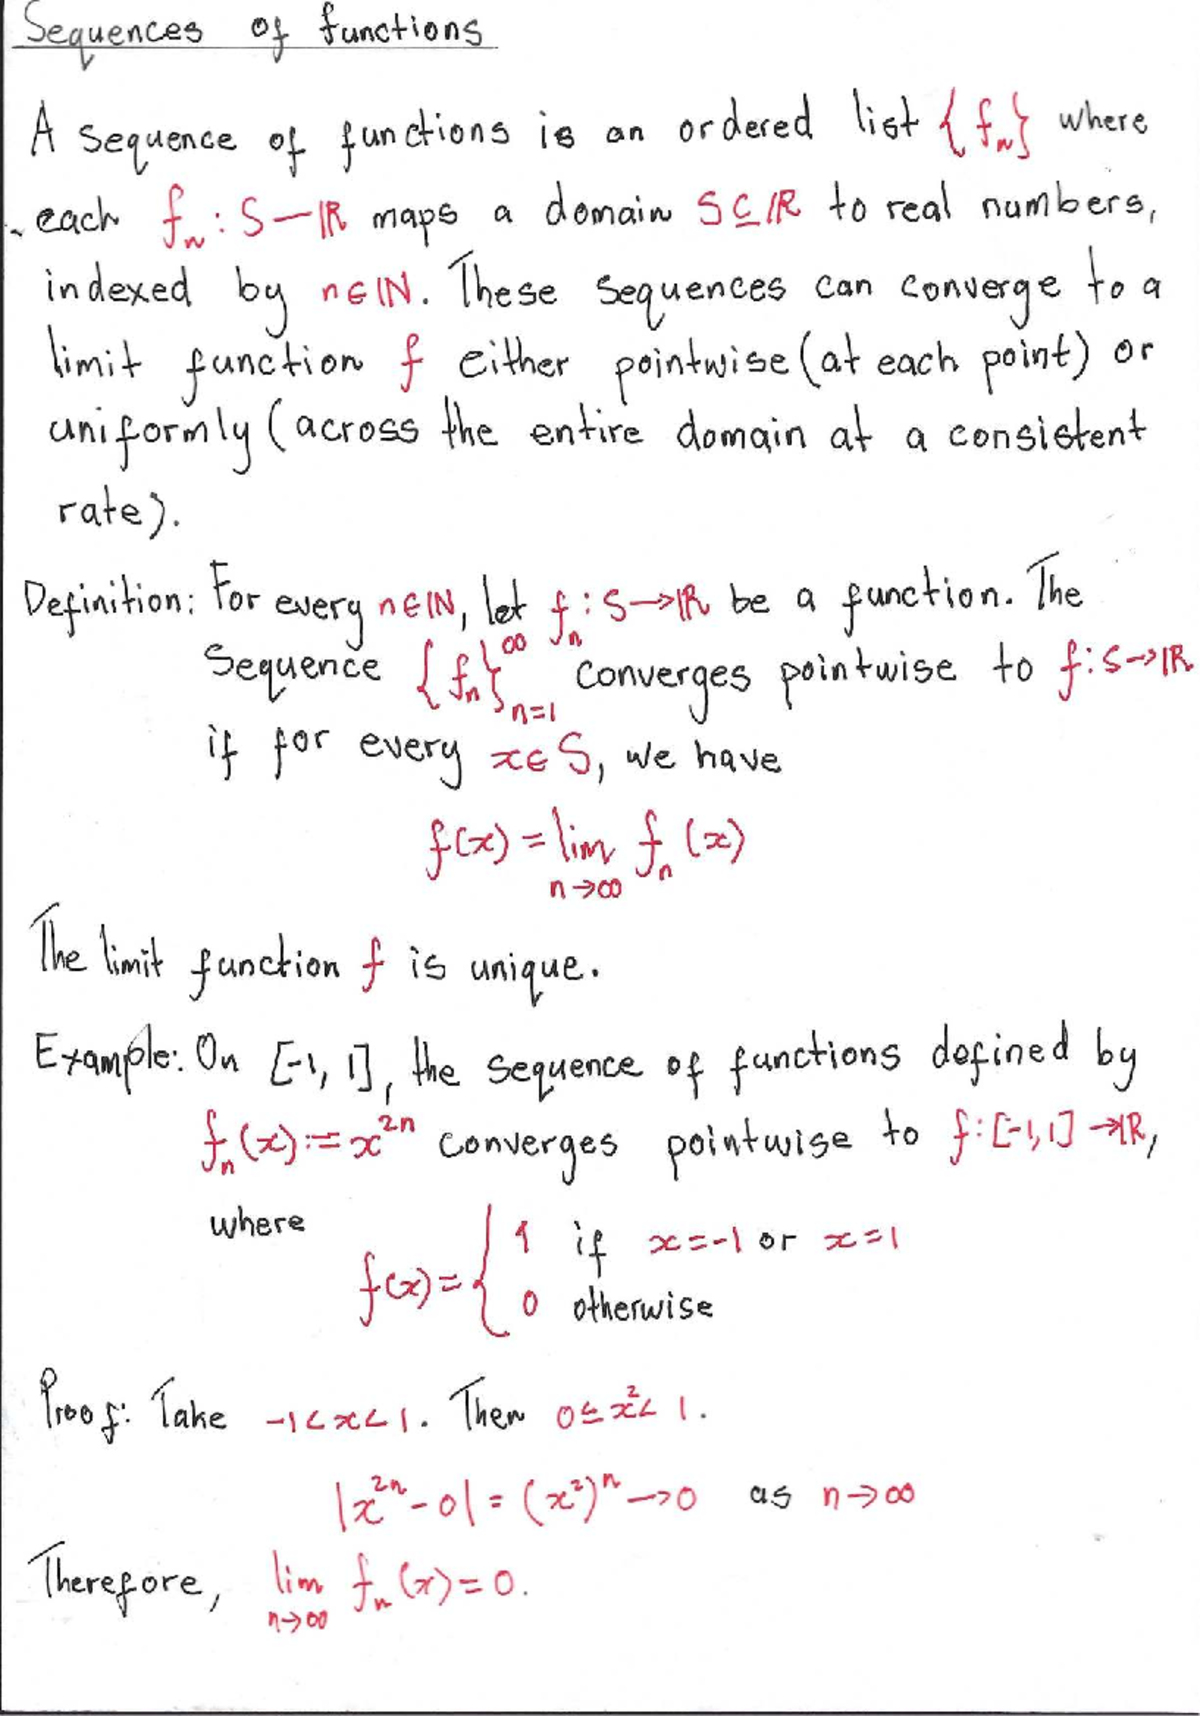 Sequences of functions
A sequence of functions is an ordered list {fₙ} where
each fₙ : S—ℝ maps a domain S⊆ℝ to real numbers,
indexed by n∈ℕ. These sequences can converge to a
limit function f either pointwise (at each point) or
uniformly (across the entire domain at a consistent
rate).
Definition: For every n∈ℕ, let fₙ : S→ℝ be a function. The
sequence {fₙ}^∞_{n=1} converges pointwise to f : S→ℝ
if for every x∈S, we have
f(x) = lim_{n→∞} fₙ(x)
The limit function f is unique.
Example: On [-1, 1], the sequence of functions defined by
fₙ(x) := x²ⁿ converges pointwise to f : [-1,1] → ℝ,
where
f(x) = { 1 if x=-1 or x=1
0 otherwise
Proof: Take -1<x<1. Then 0≤x²<1.
|x²ⁿ - 0| = (x²)ⁿ → 0 as n→∞
Therefore, lim_{n→∞} fₙ(x) = 0.